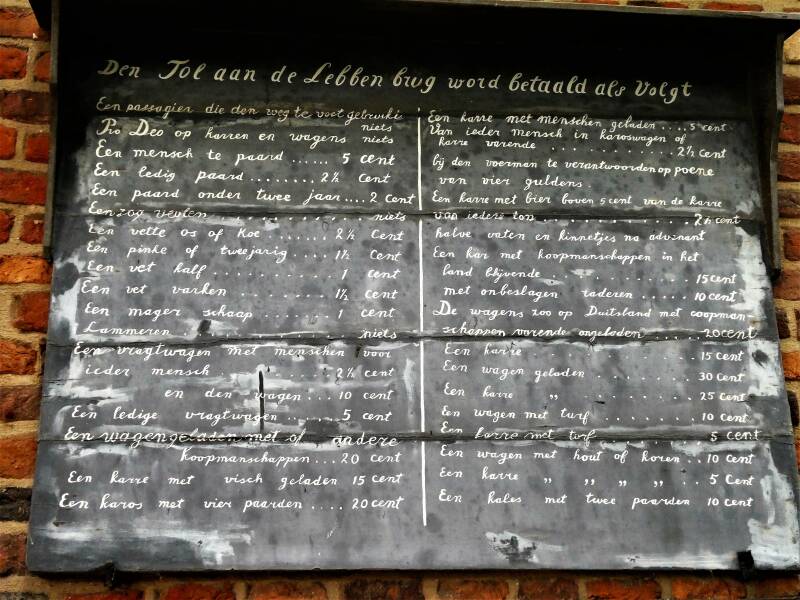 Den Tol aan de Lebben brug word betaald als Volgt
Een passagier die den weg te voet gebruikt
niets
Pro Deo op karren en wagens niets
Een mensch te paard ...... 5 cent
Een ledig paard ........ 2½ cent
Een paard onder twee jaar .... 2 cent
Een zog veulen ............... niets
Een vette os of koe ....... 2½ cent
Een pinke of tweejarig .... 1½ cent
Een vet kalf ........... 1 cent
Een vet varken ......... 1½ cent
Een mager schaap ........ 1 cent
Lammeren ................. niets
Een vragtwagen met menschen voor
ieder mensch ........ 2½ cent
en den wagen ... 10 cent
Een ledige vragtwagen .... 5 cent
Een wagen geladen met of andere
Koopmanschappen ... 20 cent
Een karre met visch geladen 15 cent
Een karos met vier paarden .... 20 cent
Een karre met menschen geladen .... 5 cent
Van ieder mensch in karoswagen of
karre varende ............ 2½ cent
bij den voerman te verantwoorden op poene
van vier guldens.
Een karre met bier boven 5 cent van de karre
van iedere ton ............ 2½ cent
halve vaten en kinnetjes na advenant
Een kar met koopmanschappen in het
land blijvende ............ 15 cent
met onbeslagen raderen ..... 10 cent
De wagens zoo op Duitsland met coopman-
schappen varende ongeladen ..... 20 cent
Een karre ............ 15 cent
Een wagen geladen ........ 30 cent
Een karre „ ........ 25 cent
Een wagen met turf ....... 10 cent
Een karre met turf ........ 5 cent
Een wagen met hout of koren .. 10 cent
Een karre „ „ „ „ .. 5 cent
Een kales met twee paarden 10 cent